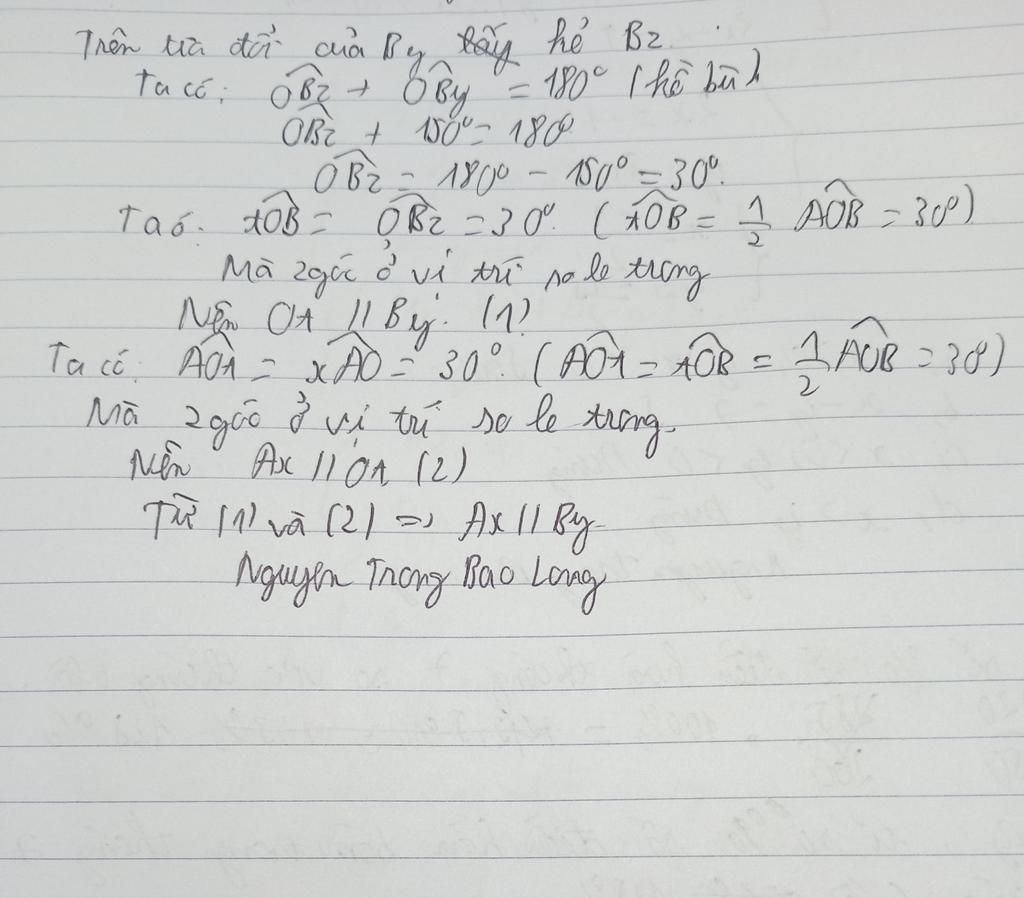 Trên tia đối của By kẻ Bz.
Ta có: OBz + OBy = 180° (kề bù)
OBz + 150° = 180°
OBz = 180° - 150° = 30°.
Ta có: tOB = OBz = 30°. (tOB = 1/2 AOB = 30°)
Mà 2 góc ở vị trí so le trong
Nên Ot // By. (1)
Ta có: AOt = xAO = 30°. (AOt = tOB = 1/2 AOB = 30°)
Mà 2 góc ở vị trí so le trong.
Nên Ax // Ot (2)
Từ (1) và (2) => Ax // By
Nguyen Trong Bao Long